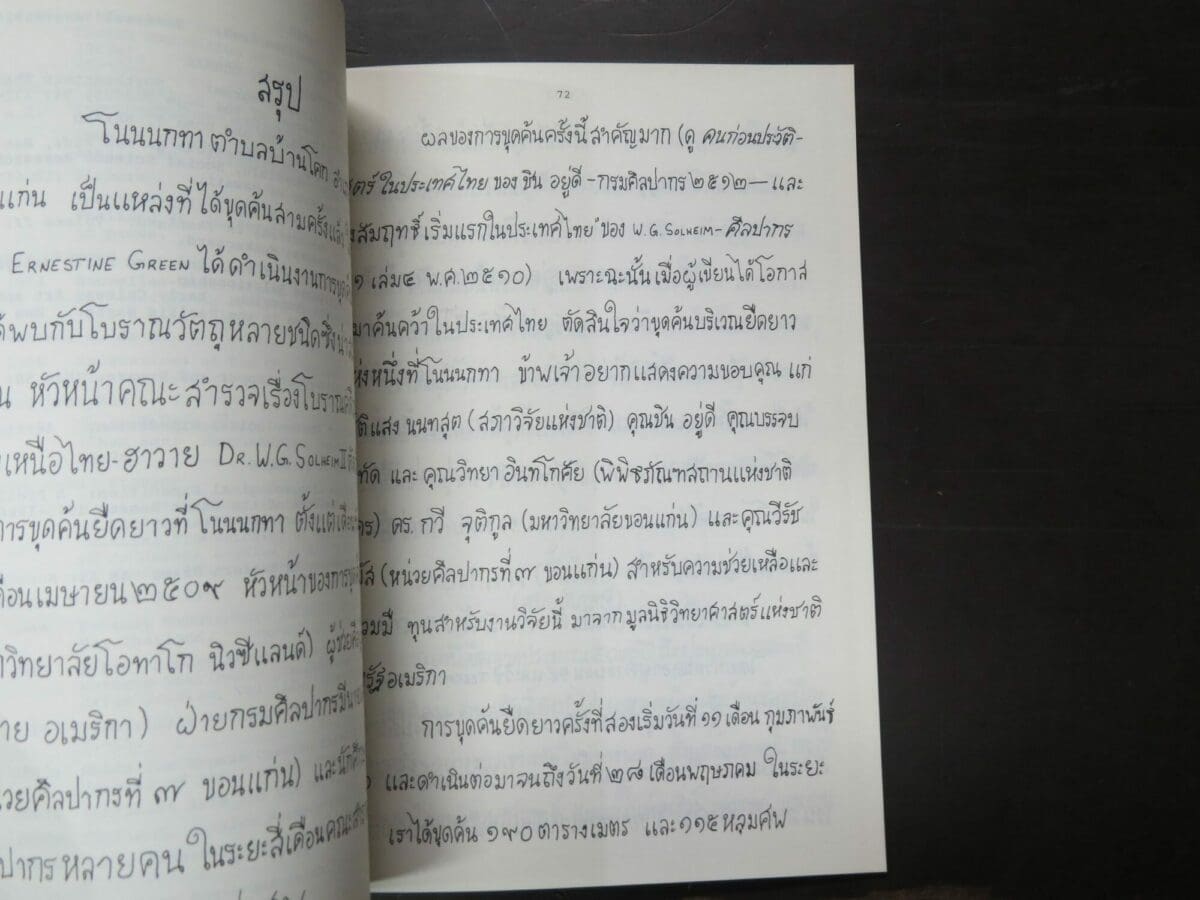 สรุป
โนนนกทา ตำบลบ้านโคก
แก่น เป็นแหล่งที่ได้ขุดค้นสามครั้งแล้ว
ERNESTINE GREEN ได้ดำเนินงานการขุด
พบกับโบราณวัตถุหลายชนิดซึ่ง
หัวหน้าคณะสำรวจเรื่องโบราณ
เหนือไทย-ฮาวาย DR. W.G. SOLHEIM II
การขุดค้นยืดยาวที่โนนนกทา ตั้งแต่
เดือนเมษายน ๒๕๐๙ หัวหน้าของการ
วิทยาลัยโอทาโก นิวซีแลนด์)
อเมริกา) ฝ่ายกรมศิลปากรมี
ศิลปากรที่ ๗ ขอนแก่น) และ
ปากรหลายคน ในระยะสี่เดือนคณะ
72
ผลของการขุดค้นครั้งนี้สำคัญมาก (ดู คนก่อนประวัติ-
ในประเทศไทย ของ ชิน อยู่ดี - กรมศิลปากร ๒๕๑๒ — และ
สัมฤทธิ์เริ่มแรกในประเทศไทย" ของ W.G. SOLHEIM - ศิลปากร
๑ เล่ม ๔ พ.ศ. ๒๕๑๐) เพราะฉะนั้นเมื่อผู้เขียนได้โอกาส
มาค้นคว้าในประเทศไทย ตัดสินใจว่าขุดค้นบริเวณยืดยาว
หนึ่งที่โนนนกทา ข้าพเจ้าอยากแสดงความขอบคุณ แก่
แสง นนทสุต (สภาวิจัยแห่งชาติ) คุณชิน อยู่ดี คุณบรรจบ
และ คุณวิทยา อินทโกศัย (พิพิธภัณฑสถานแห่งชาติ
ดร. กวี จุติกูล (มหาวิทยาลัยขอนแก่น) และคุณวีรัช
(หน่วยศิลปากรที่ ๗ ขอนแก่น) สำหรับความช่วยเหลือและ
ทุนสำหรับงานวิจัยนี้ มาจากมูลนิธิวิทยาศาสตร์แห่งชาติ
รัฐอเมริกา
การขุดค้นยืดยาวครั้งที่สองเริ่มวันที่ ๑๑ เดือน กุมภาพันธ์
และดำเนินต่อมาจนถึงวันที่ ๒๘ เดือนพฤษภคม ในระยะ
เราได้ขุดค้น ๑๙๐ ตารางเมตร และ ๑๑๕ หลุมศพ